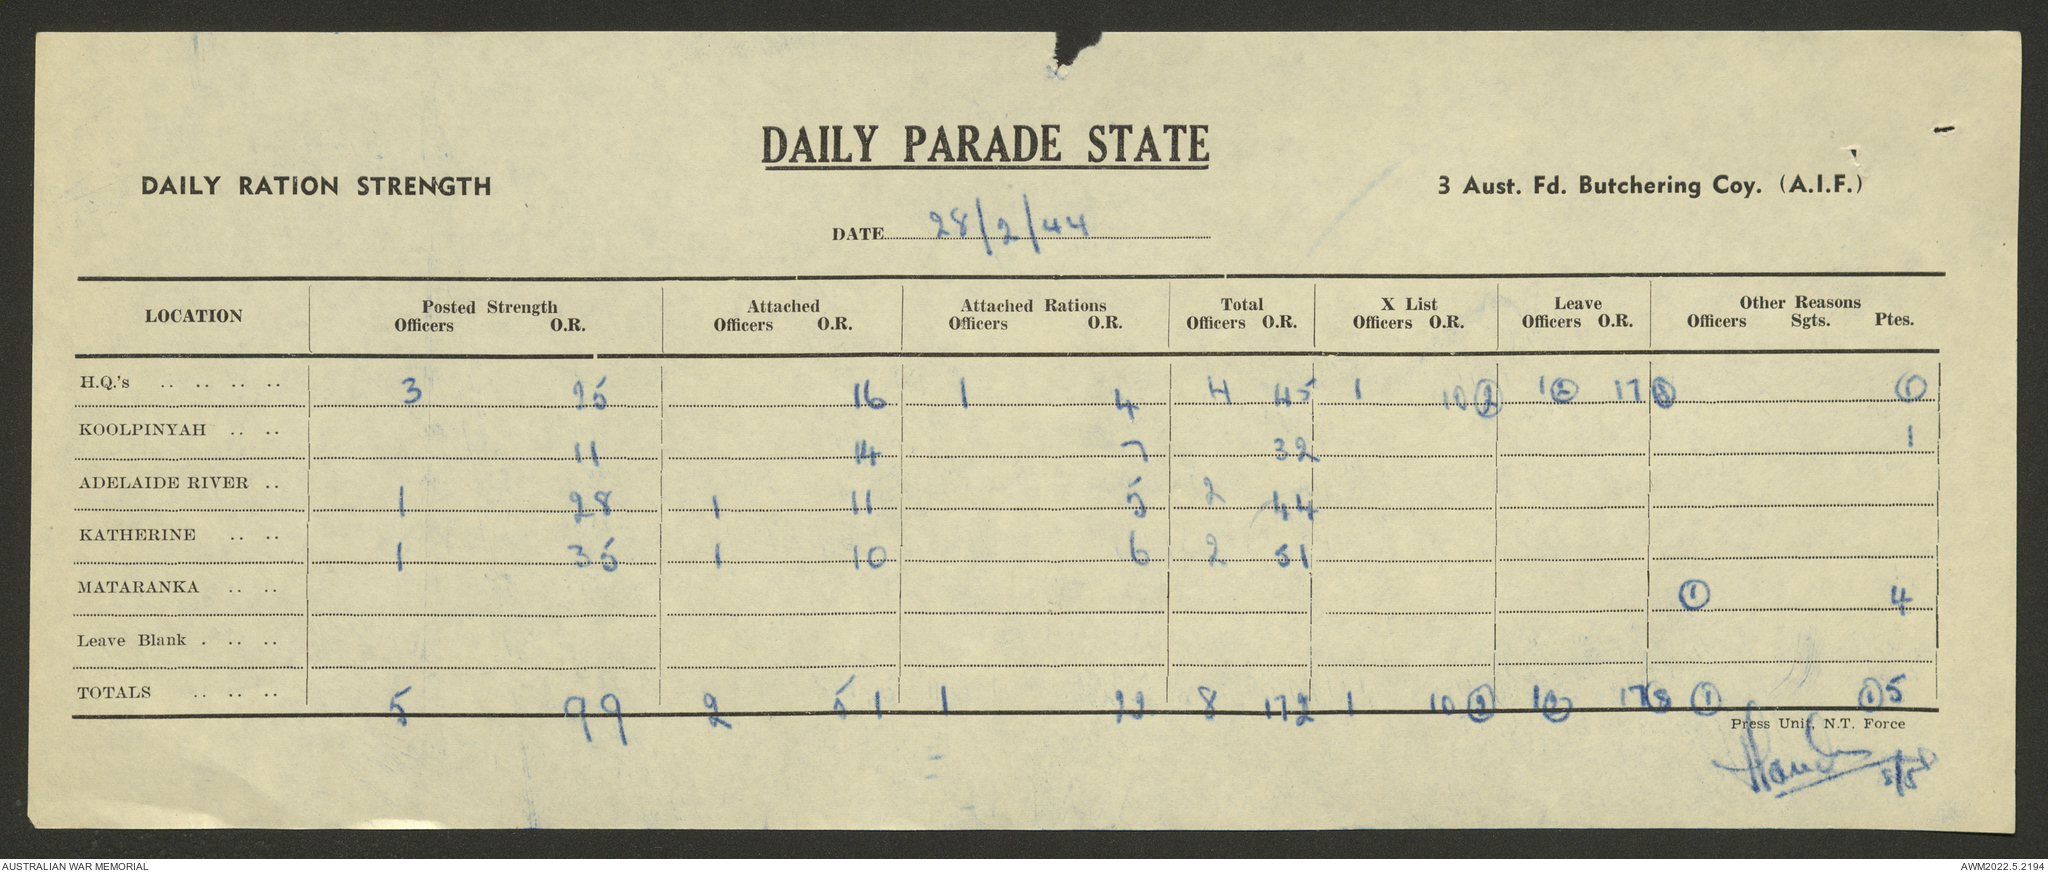 DAILY PARADE STATE
DAILY RATION STRENGTH
3 Aust. Fd. Butchering Coy. (A.I.F.)
DATE 28/2/44
LOCATION Posted Strength Attached Attached Rations Total X List Leave Other Reasons
Officers O.R. Officers O.R. Officers O.R. Officers O.R. Officers O.R. Officers O.R. Officers Sgts. Ptes.
H.Q.'s .. .. .. .. 3 25 16 1 4 4 45 1 10 2 1 2 17 8 1
KOOLPINYAH .. .. 11 14 7 32 1
ADELAIDE RIVER .. 1 28 1 11 5 2 44
KATHERINE .. .. 1 35 1 10 6 2 51
MATARANKA .. .. 1 4
Leave Blank . .. ..
TOTALS .. .. .. 5 99 2 51 1 22 8 172 1 10 2 1 2 17 8 1 1 5
Press Unit, N.T. Force
AUSTRALIAN WAR MEMORIAL
AWM2022.5.2194